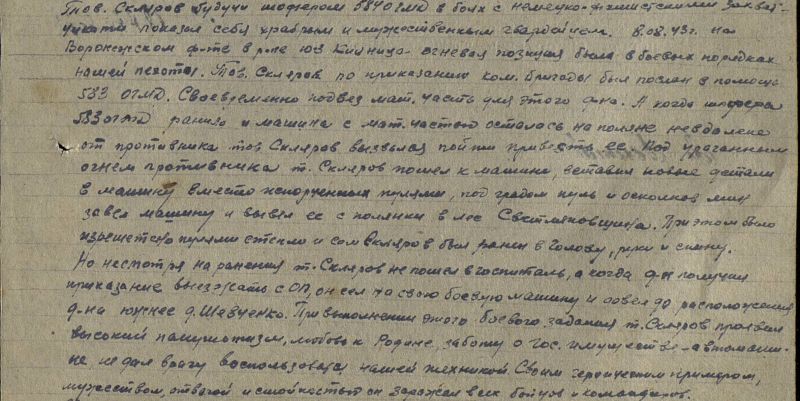 Тов. Скляров будучи шофером 584 ОГМД в боях с немецко-фашистскими захват-
чиками показал себя храбрым и мужественным гвардейцем. 8.08.43г. на
Воронежском ф-те в р-не огневая позиция была в боевых порядках
нашей пехоты. Тов. Скляров по приказанию ком. бригады был послан в помощь
583 ОГМД. Своевременно подвез мат. часть для этого д-на. А когда шофера
583 ОГМД ранило и машина с мат. частью осталась на поляне невдалеке
от противника тов Скляров вызвался пойти привезть ее. Под ураганным
огнем противника т. Скляров пошел к машине, вставил новые детали
в машину вместо испорченных пулями, под градом пуль и осколков мин
завел машину и вывел ее с полянки в лес. При этом было
изрешетено пулями стекло и сам Скляров был ранен в голову, руки и спину.
Но несмотря на ранения т. Скляров не пошел в госпиталь, а когда д-н получил
приказание выезжать с ОП, он сел на свою боевую машину и довел до расположения
д-на южнее д. Шевченко. При выполнении этого боевого задания т. Скляров проявил
высокий патриотизм, любовь к Родине, заботу о гос. имуществе - автомаши-
не, не дал врагу воспользоваться нашей техникой. Своим героическим примером,
мужеством, отвагой и стойкостью он заражал всех бойцов и командиров.